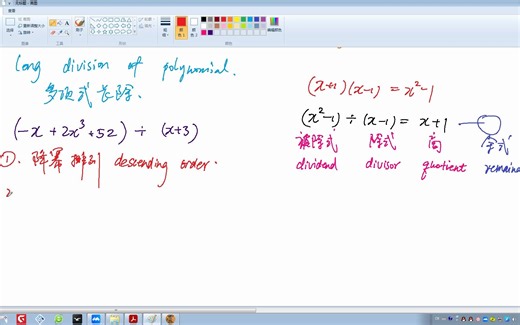 long division of polynomial.
多项式长除.
(-x + 2x³ + 52) ÷ (x+3)
①. 降幂排列 descending order.
2
(x+1)(x-1) = x²-1
(x²-1) ÷ (x-1) = x+1
被除式 除式 商 余式
dividend divisor quotient remaine